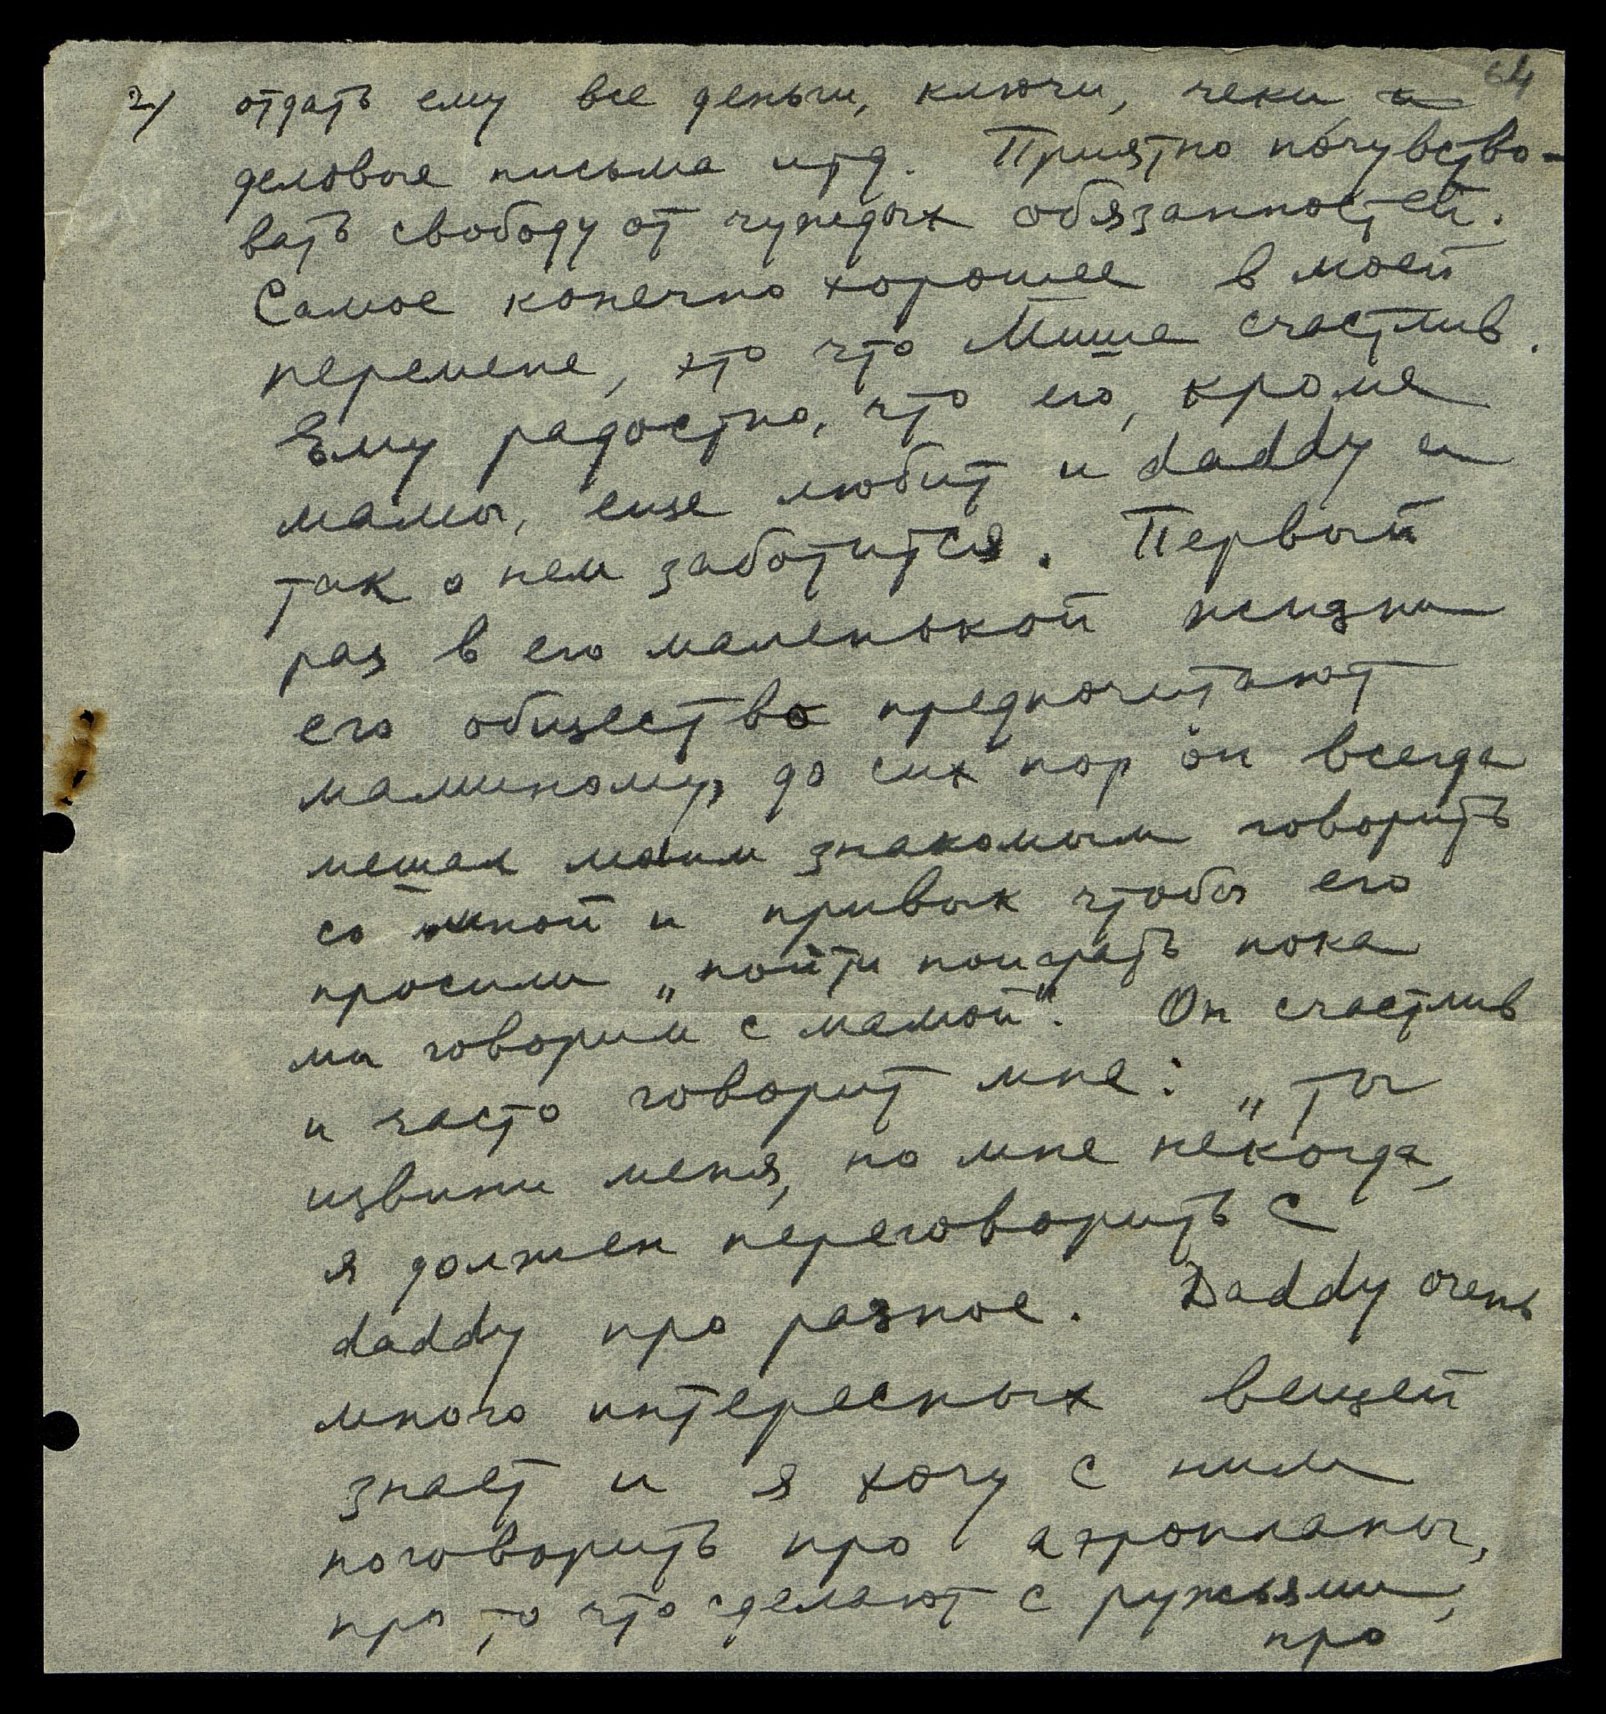 64
2) отдать ему все деньги, ключи, чеки и
деловые письма итд. Приятно почувство-
вать свободу от чуждых обязанностей.
Самое конечно хорошее в моей
перемене, это что Миша счастлив.
Ему радостно, что его, кроме
мамы, еще любит и daddy и
так о нем заботится. Первый
раз в его маленькой жизни
его общество предпочитают
маминому, до сих пор он всегда
мешал моим знакомым говорить
со мной и привык чтобы его
просили „пойти поиграть пока
мы говорим с мамой“. Он счастлив
и часто говорит мне: „ты
извини меня, но мне некогда,
я должен переговорить с
daddy про разное. Daddy очень
много интересных вещей
знает и я хочу с ним
поговорить про аэропланы,
про то что делают с ружьями,
про